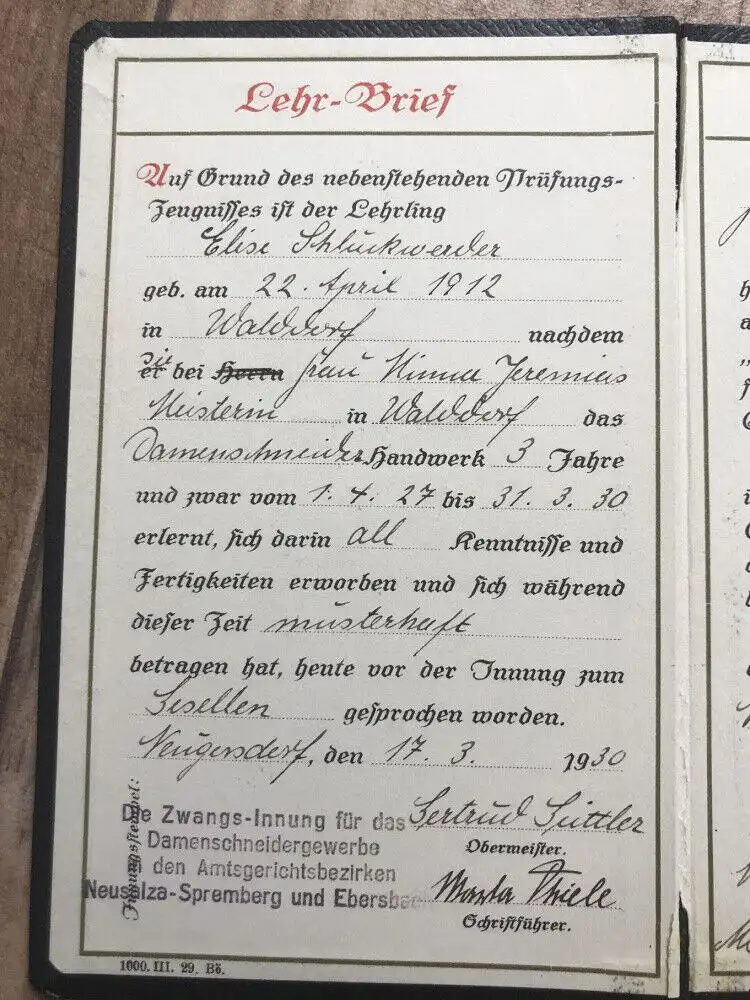 Lehr-Brief
Auf Grund des nebenstehenden Prüfungs-
Zeugnisses ist der Lehrling
Elise Schluckwerder
geb. am 22. April 1912
in Walddorf nachdem
sie
er bei Herrn Frau Minna Jeremias
Meisterin in Walddorf das
Damenschneider Handwerk 3 Jahre
und zwar vom 1. 4. 27 bis 31. 3. 30
erlernt, sich darin all Kenntnisse und
Fertigkeiten erworben und sich während
dieser Zeit musterhaft
betragen hat, heute vor der Innung zum
Gesellen gesprochen worden.
Neugersdorf, den 17. 3. 1930
Innungsstempel:
Die Zwangs-Innung für das
Damenschneidergewerbe
in den Amtsgerichtsbezirken
Neusalza-Spremberg und Ebersbach
Gertrud
Obermeister.
Martha Thiele
Schriftführer.
1000. III. 29. Bö.